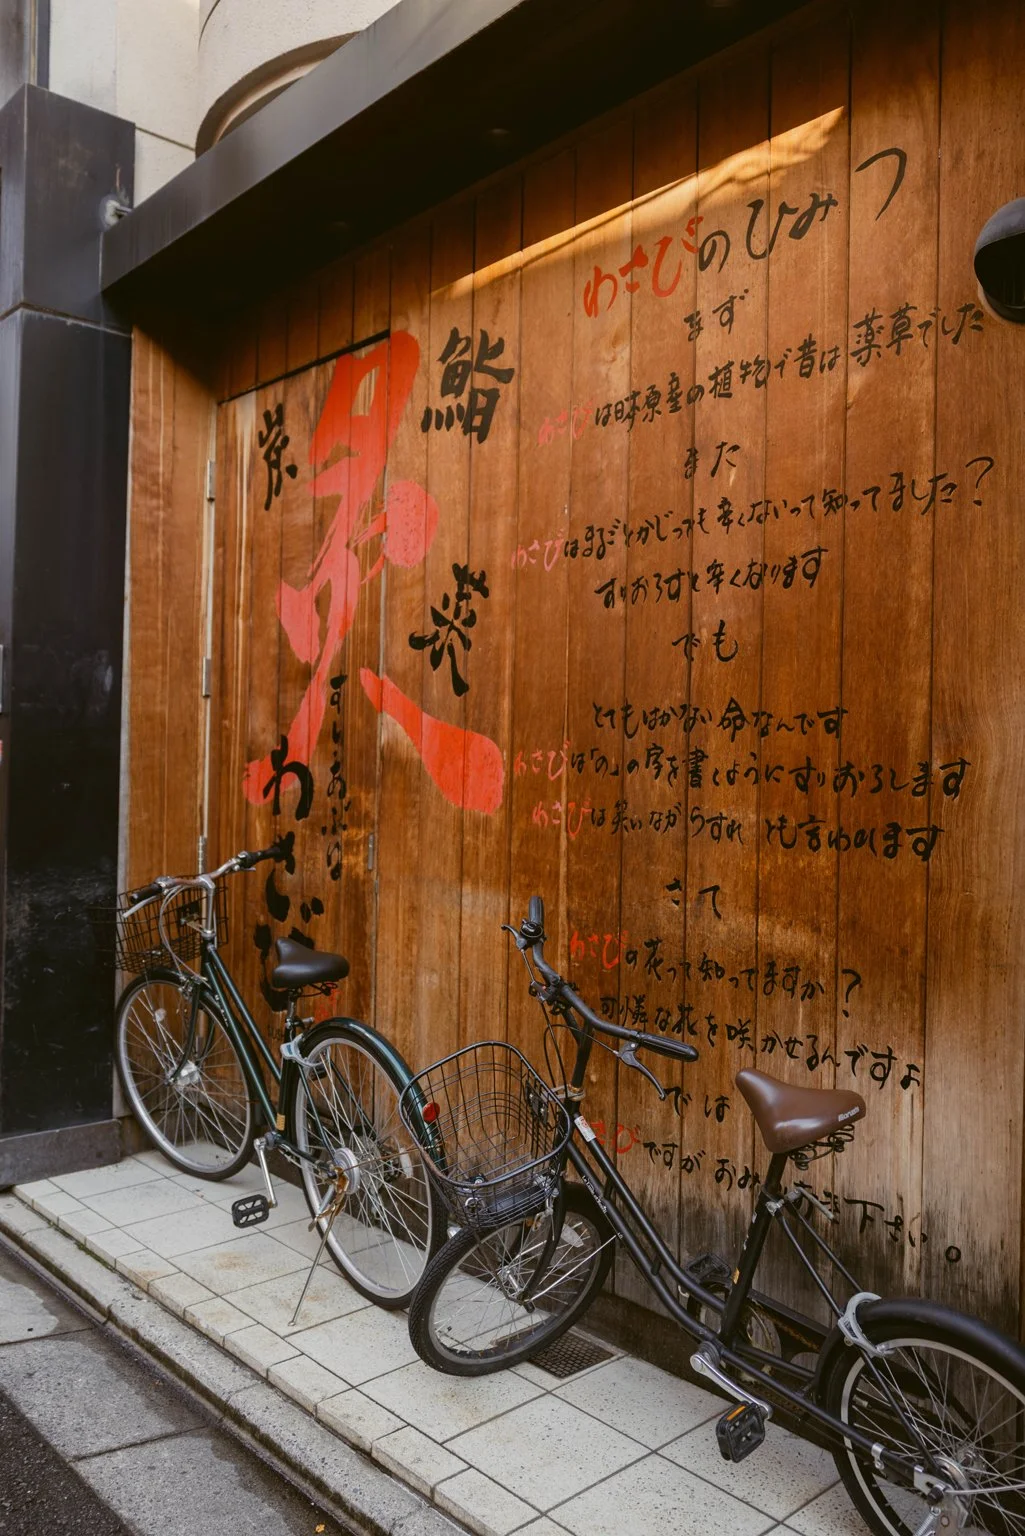 わさびのひみつ
まず
わさびは日本原産の植物で昔は薬草でした
また
わさびはまるごとかじっても辛くないって知ってました?
すりおろすと辛くなります
でも
とてもはかない命なんです
わさびは「の」の字を書くようにすりおろします
わさびは笑いながらすれとも言われます
さて
わさびの花って知ってますか?
可憐な花を咲かせるんですよ
では
さびですが お 下さい。
鮨
炭
すし・あぶりは
わさび